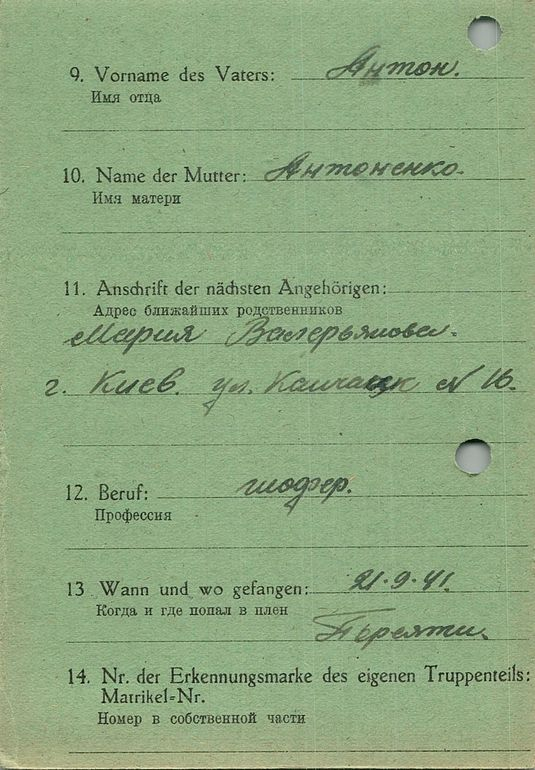 9. Vorname des Vaters: Антон.
Имя отца
10. Name der Mutter: Антоненко.
Имя матери
11. Anschrift der nächsten Angehörigen:
Адрес ближайших родственников
Мария Валерьяновна.
г. Киев. ул. N 16.
12. Beruf: шофер.
Профессия
13 Wann und wo gefangen: 21.9.41.
Когда и где попал в плен
14. Nr. der Erkennungsmarke des eigenen Truppenteils:
Matrikel=Nr.
Номер в собственной части